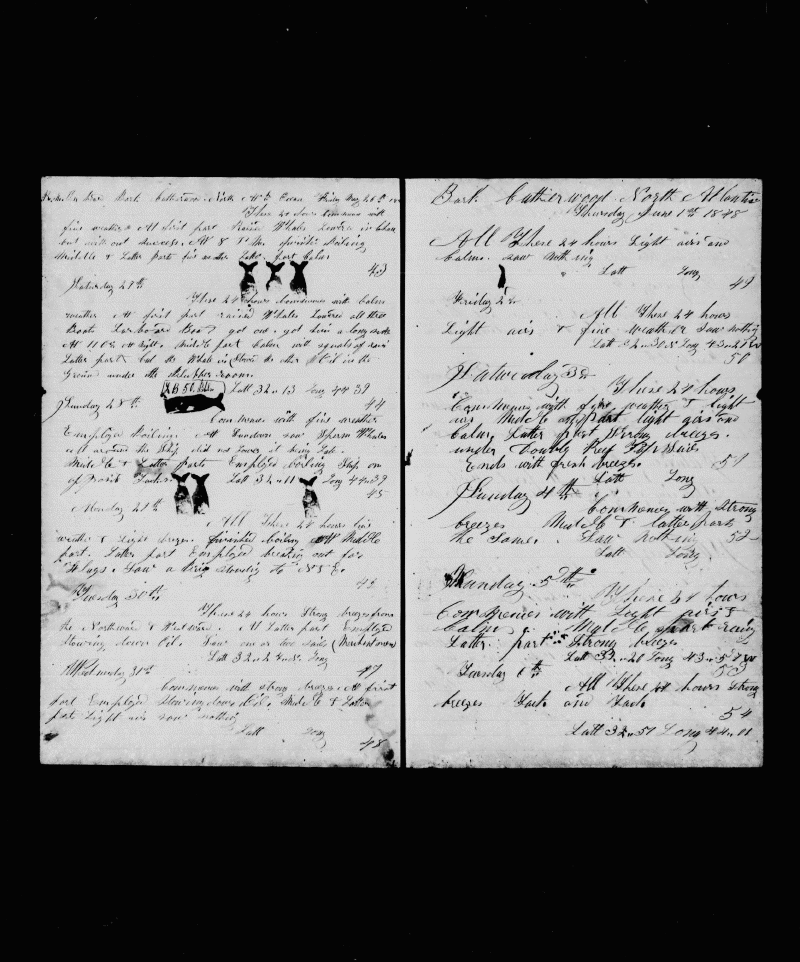 Bark Catherwood North Atl Ocean Friday May 26th
These 24 hours Commences with
fine weather At first part Raised Whales Lowered in Chase
but with out success. At 8 P.M. finished Boiling
Middle & Latter parts fine weather Latter part Calm
43
Saturday 27th
These 24 hours Commences with Calm
weather At first part raised Whales Lowered all three
Boats Larboard Boat got one. got him a long side
At 11 Oc At Night. Middle part Calm with squals of rain
Latter part Cut the Whale in
Ground under the
R B 50. Bbls
Latt 32 n 13 Long 44 39
44
Sunday 28th
Commences with fine weather
Employed Boiling. At Sundown saw Sperm Whales
all around the Ship did not Lower it being Late.
Middle & Latter parts Employed boiling Ship on
Tacks. Latt 31 n 11 Long 44 n 39
45
Monday 29th
All These 24 hours fine
weather & Light breeze. finished boiling At Middle
part. Latter part Employed breaking out for
Saw a Brig standing to
46
Tuesday 30th
These 24 hours Strong breezes from
the Northward & Westward. At Latter part Employed
Stowing down Oil. Saw one or two sails (Merchantmen)
Latt 32 n 2 Long
47
Wednesday 31st
Commences with strong breeze At first
part Employed Stowing down Oil. Middle & Latter
parts Light airs saw nothing
Latt Long
48
Bark Catherwood North Atlantic
Thursday June 1st 1848
All These 24 hours Light airs and
Calms. saw nothing
Latt Long
49
Friday 2d
All These 24 hours
Light airs & fine weather Saw nothing
Latt 32 n 30 Long 43 n 27
50
Saturday 3d
These 24 hours
Commences with fine weather & light
airs Middle part light airs and
Calm, Latter part Strong breeze.
under Double Reef Topsails
Ends with fresh breeze.
51
Latt Long
Sunday 4th
Commences with Strong
breezes Middle & latter parts
the same. Saw nothing
52
Latt Long
Monday 5th
These 24 hours
Commences with Light airs &
Calm. Middle part rainy
Latter part Strong breeze
Latt 33 n 21 Long 43 n 58
53
Tuesday 6th
All These 24 hours Strong
breezes Tack and Tack.
54
Latt 32 n 51 Long 44 n 11